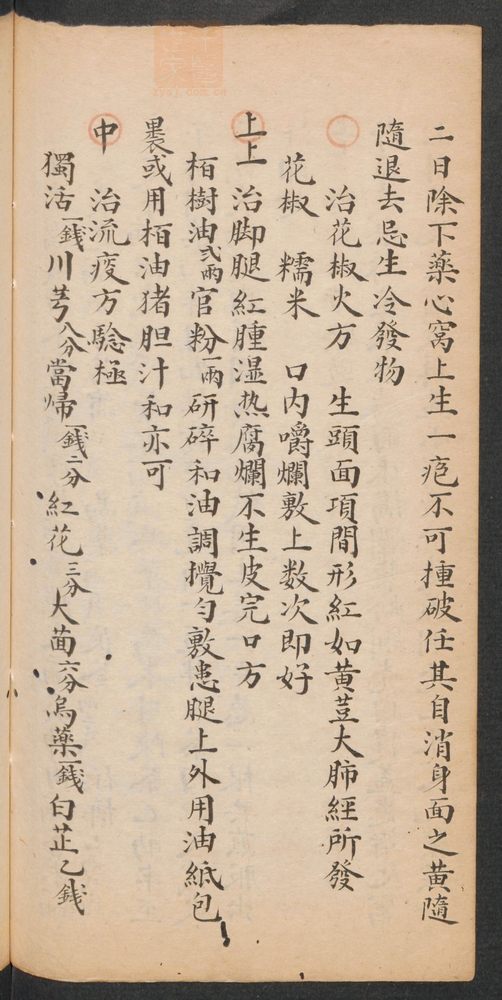 二日除下藥心窩上生一疱不可揰破任其自消身面之黄隨
隨退去忌生冷發物
治花椒火方 生頭面項間形紅如黄荳大肺經所發
花椒 糯米 口内嚼爛敷上数次即好
上上 治脚腿紅腫湿热腐爛不生皮完口方
栢樹油弍両官粉一両研碎和油調攪匀敷患腿上外用油紙包
褁或用栢油猪胆汁和亦可
中 治流疫方騐極
獨活一銭川芎八分當帰一銭二分紅花三分大茴六分烏藥一銭白芷乙銭
zysj.com.cn